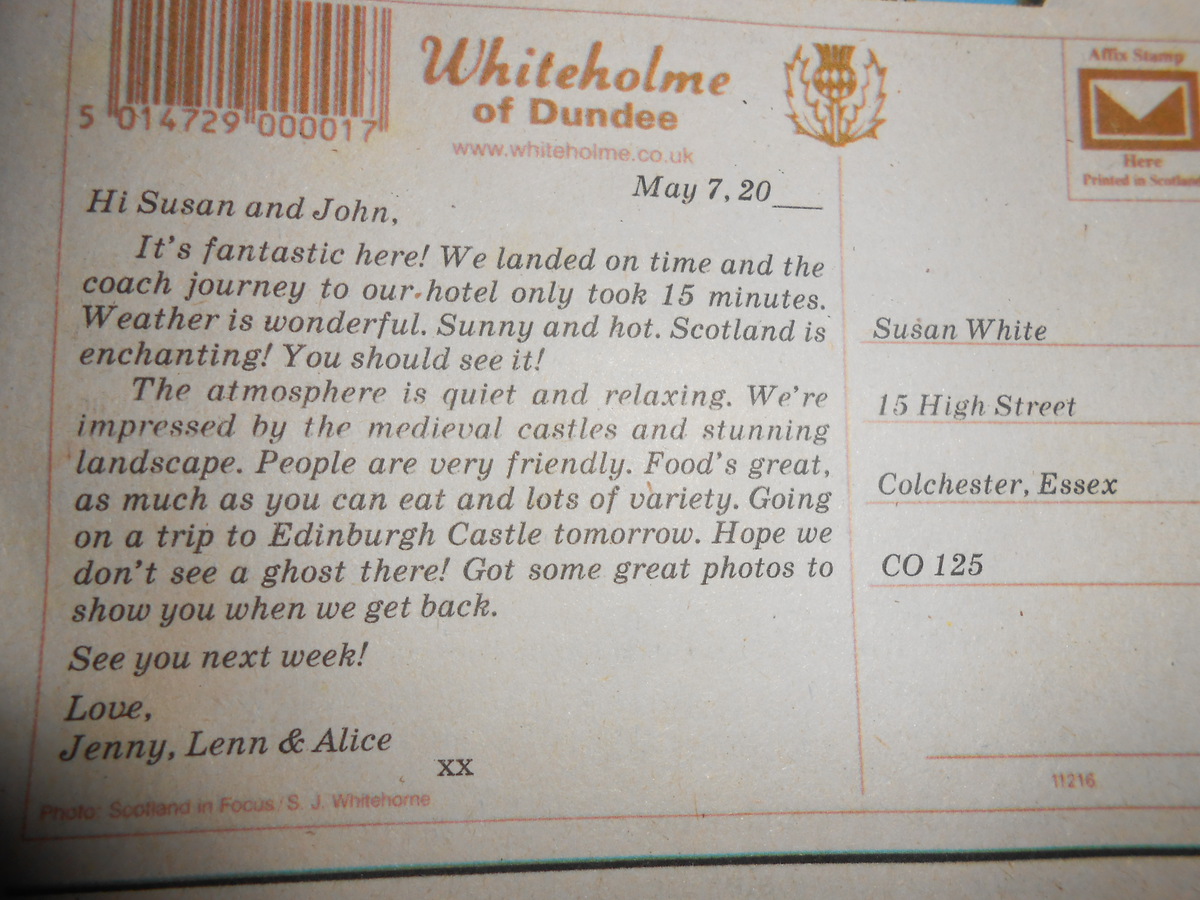 5 014729 000017
Whiteholme
of Dundee
www.whiteholme.co.uk
Affix Stamp
Here
Printed in Scotland
May 7, 20___
Hi Susan and John,
It's fantastic here! We landed on time and the
coach journey to our hotel only took 15 minutes.
Weather is wonderful. Sunny and hot. Scotland is
enchanting! You should see it!
The atmosphere is quiet and relaxing. We're
impressed by the medieval castles and stunning
landscape. People are very friendly. Food's great,
as much as you can eat and lots of variety. Going
on a trip to Edinburgh Castle tomorrow. Hope we
don't see a ghost there! Got some great photos to
show you when we get back.
See you next week!
Love,
Jenny, Lenn & Alice
xx
Photo: Scotland in Focus / S. J. Whitehorne
Susan White
15 High Street
Colchester, Essex
CO 125
11216